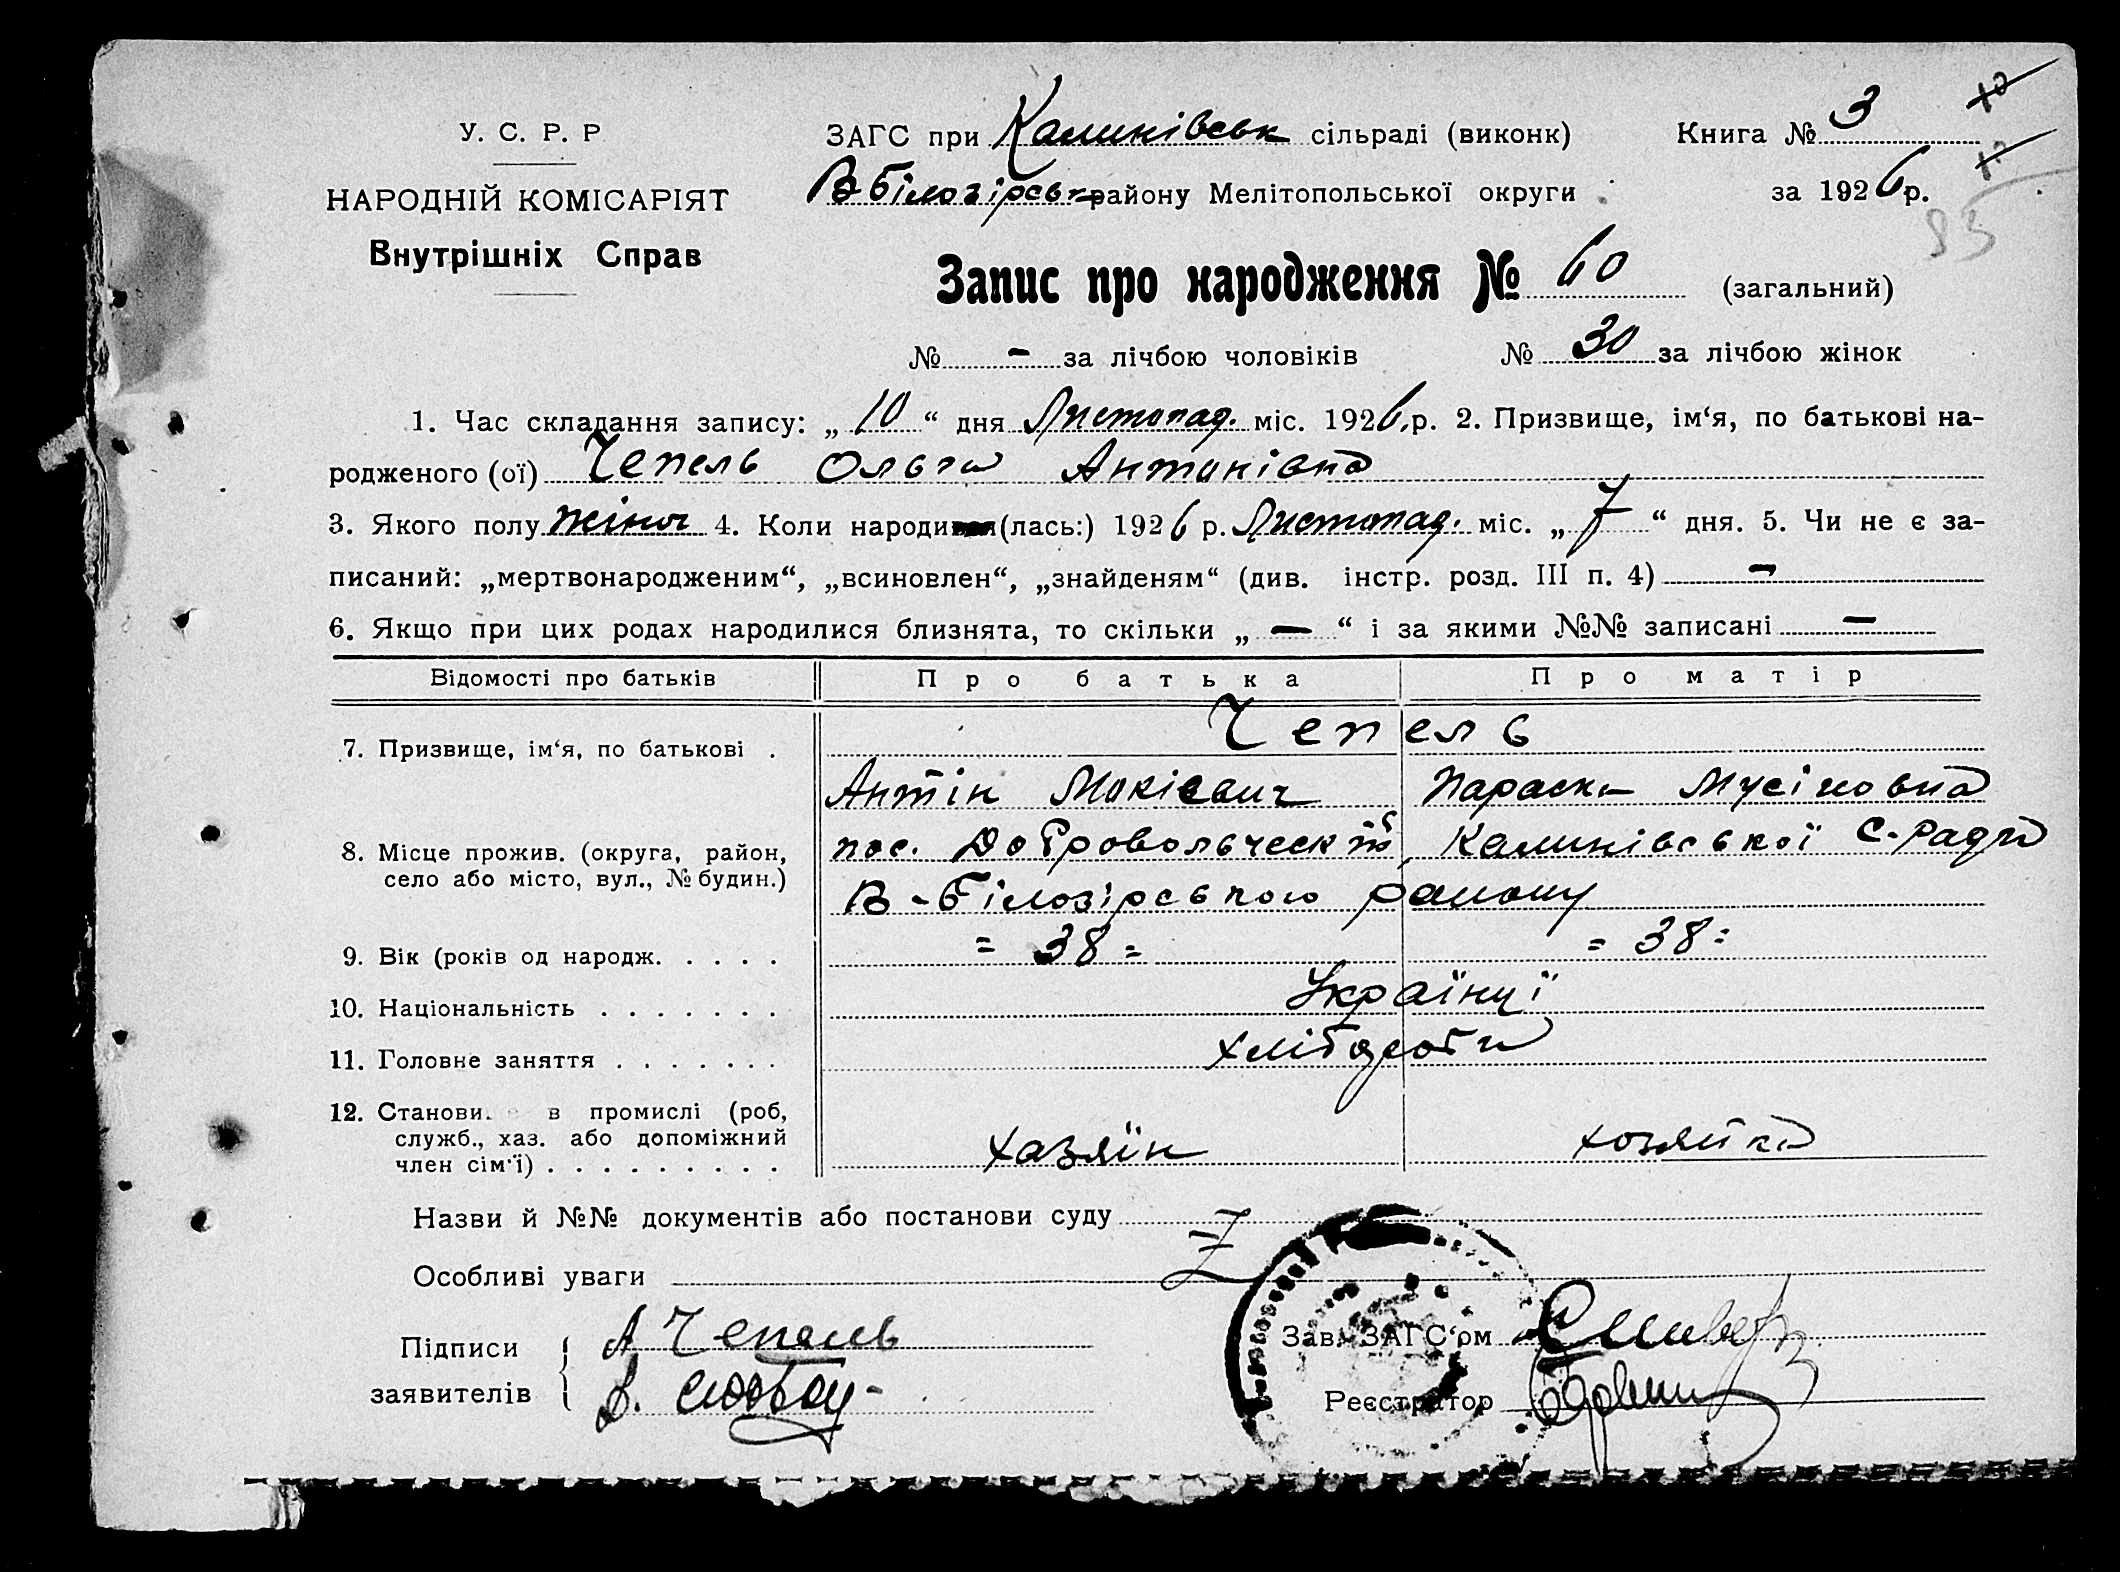 У. С. Р. Р
НАРОДНІЙ КОМІСАРІЯТ
Внутрішніх Справ
ЗАГС при Калинівськ сільраді (виконк) Книга № 3
В Білозірськ району Мелітопольської округи за 1926 р.
85
Запис про народження № 60 (загальний)
№ - за лічбою чоловіків № 30 за лічбою жінок
1. Час складання запису: „10“ дня Листопад. міс. 1926 р. 2. Призвище, ім‘я, по батькові на-
родженого (ої) Чепель Ольга Антонівна
3. Якого полу жіноч 4. Коли народи (лась:) 1926 р. Листопад. міс. „7“ дня. 5. Чи не є за-
писаний: „мертвонародженим“, „всиновлен“, „знайденям“ (див. інстр. розд. III п. 4) -
6. Якщо при цих родах народилися близнята, то скільки „ — “ і за якими №№ записані —
Відомості про батьків Про батька Про матір
7. Призвище, ім‘я, по батькові . Чепель
Антін Мокієвич Параска Мусіовна
8. Місце прожив. (округа, район, пос. Добровольческій, Калинівської С-Ради
село або місто, вул., № будин.) В-Білозірського району
9. Вік (років од народж. . . . . = 38 = = 38 =
10. Національність . . . . . . . Українці
11. Головне заняття . . . . . . . хлібороби
12. Станови. в промислі (роб,
служб., хаз. або допоміжний
член сім‘ї) . . . . . . . . . хазяїн хозяйка
Назви й №№ документів або постанови суду
Особливі уваги
Підписи А Чепель
заявителів
Зав. ЗАГС‘ом
Реєстратор